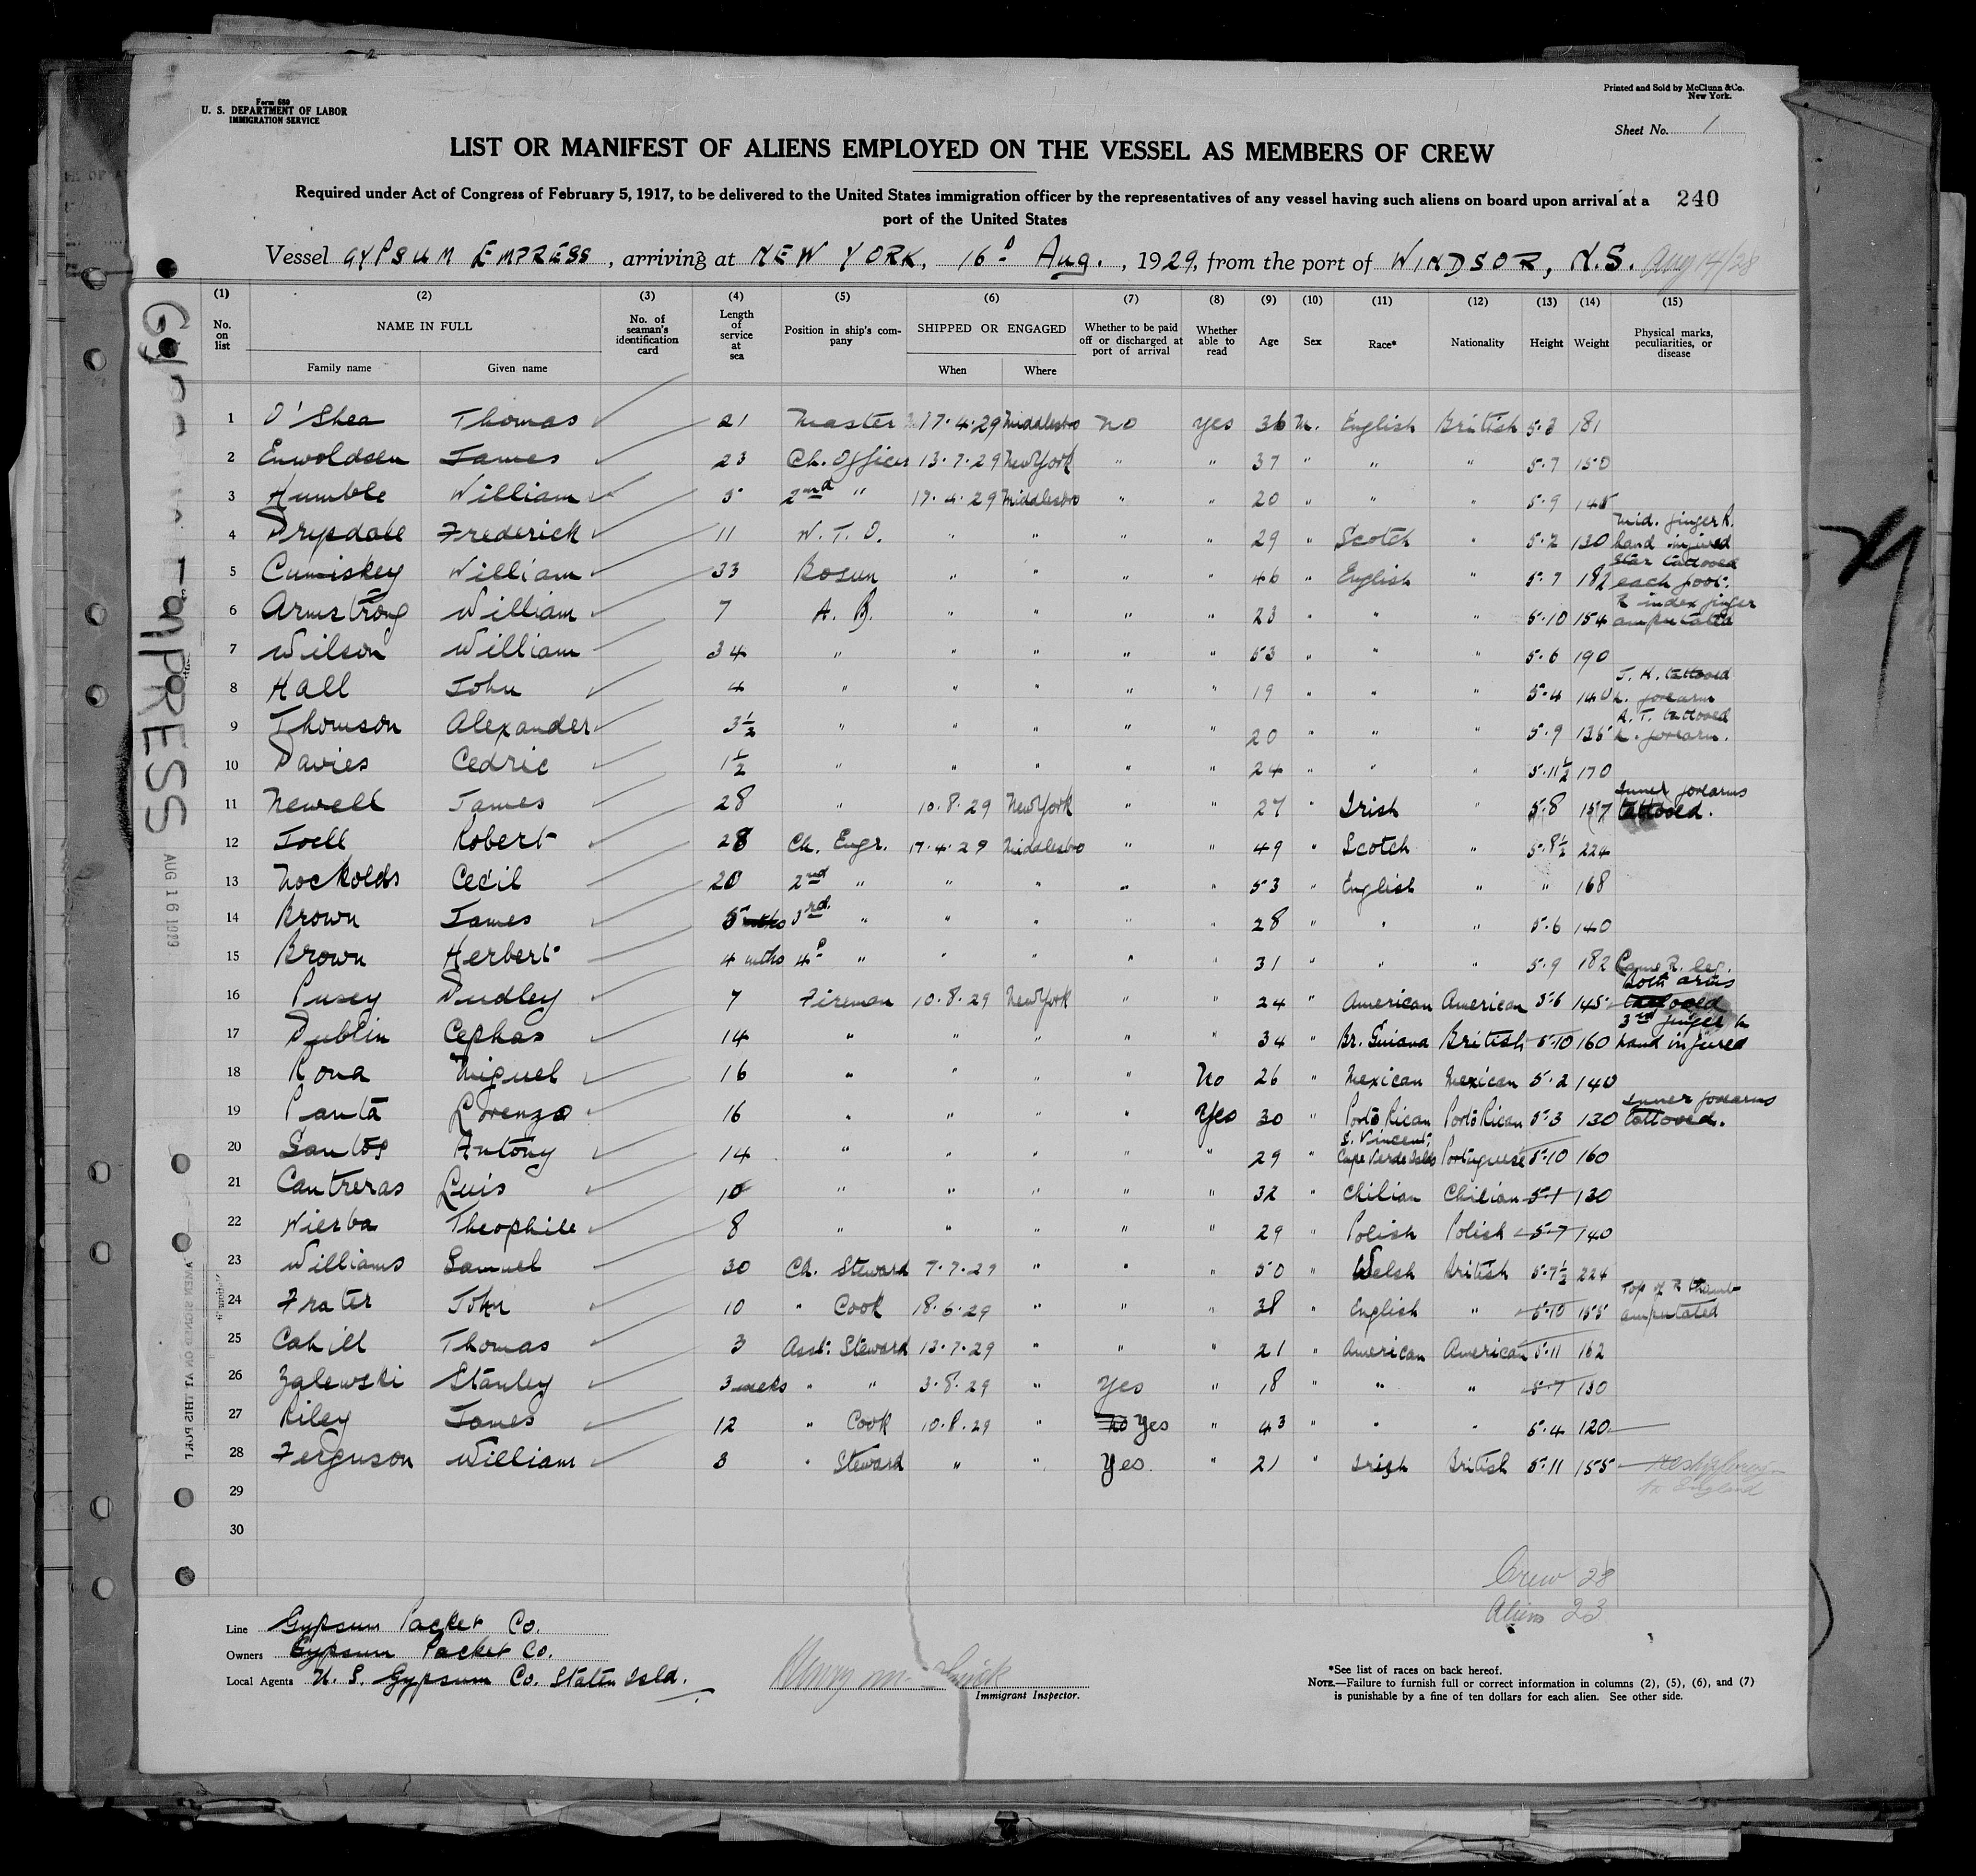 Form 680
U. S. DEPARTMENT OF LABOR
IMMIGRATION SERVICE
Printed and Sold by McClunn & Co.
New York.
Sheet No. 1
LIST OR MANIFEST OF ALIENS EMPLOYED ON THE VESSEL AS MEMBERS OF CREW
Required under Act of Congress of February 5, 1917, to be delivered to the United States immigration officer by the representatives of any vessel having such aliens on board upon arrival at a
port of the United States
240
Vessel GYPSUM EMPRESS, arriving at NEW YORK, 16 Aug., 1929, from the port of WINDSOR, N.S. Aug 14/28
(1) (2) (3) (4) (5) (6) (7) (8) (9) (10) (11) (12) (13) (14) (15)
No. on list NAME IN FULL Family name Given name No. of seaman's identification card Length of service at sea Position in ship's company SHIPPED OR ENGAGED When Where Whether to be paid off or discharged at port of arrival Whether able to read Age Sex Race* Nationality Height Weight Physical marks, peculiarities, or disease
1 O'Shea Thomas 21 Master 17.4.29 Middlesbro No Yes 36 M. English British 5.8 181
2 Enwoldsen James 23 Ch. Officer 13.7.29 New York " " 37 " " " 5.7 150
3 Humble William 5 2nd " 17.4.29 Middlesbro " " 20 " " " 5.9 145
4 Drysdale Frederick 11 W. T. O. " " " " 29 " Scotch " 5.2 130 Mid. finger R. hand injured
5 Cumiskey William 33 Bosun " " " " 46 " English " 5.7 182 Star tattooed each foot.
6 Armstrong William 7 A. B. " " " " 23 " " " 5.10 154 R index finger amputated
7 Wilson William 34 " " " " " 53 " " " 5.6 190
8 Hall John 4 " " " " " 19 " " " 5.4 140 J. H. tattooed L. forearm
9 Thomson Alexander 3½ " " " " " 20 " " " 5.9 136 A. T. tattooed R. forearm.
10 Davies Cedric 1½ " " " " " 24 " " " 5.11½ 170
11 Newell James 28 " 10.8.29 New York " " 27 " Irish " 5.8 157 Inner forearms tattooed.
12 Joell Robert 28 Ch. Engr. 17.4.29 Middlesbro " " 49 " Scotch " 5.8½ 224
13 Nockolds Cecil 20 2nd " " " " " 53 " English " " 168
14 Brown James 5 mths 3rd " " " " " 28 " " " 5.6 140
15 Brown Herbert 4 mths 4 " " " " " 31 " " " 5.9 182 Game R. leg.
16 Pusey Dudley 7 Fireman 10.8.29 New York " " 24 " American American 5.6 145 Both arms tattooed
17 Dublin Cephas 14 " " " " " 34 " Br. Guiana British 5.10 160 3rd finger hand injured
18 Rona Miguel 16 " " " " No 26 " Mexican Mexican 5.2 140
19 Panta Lorenzo 16 " " " " Yes 30 " Porto Rican Porto Rican 5.3 130 Inner forearms tattooed.
20 Santos Antony 14 " " " " " 29 " S. Vincent, Cape Verde Islds Portuguese 5.10 160
21 Cantreras Luis 10 " " " " " 32 " Chilian Chilian 5.1 130
22 Wierba Theophile 8 " " " " " 29 " Polish Polish 5.7 140
23 Williams Samuel 30 Ch. Steward 7.7.29 " " " 50 " Welsh British 5.7½ 224
24 Frater John 10 " Cook 18.6.29 " " " 38 " English " 5.10 155 Top of R thumb amputated
25 Cahill Thomas 3 Asst. Steward 13.7.29 " " " 21 " American American 5.11 162
26 Zalewski Stanley 3 weeks " " 3.8.29 " Yes " 18 " " " 5.7 130
27 Riley James 12 " Cook 10.8.29 " No Yes " 43 " " " 5.4 120
28 Ferguson William 3 " Steward " " Yes. " 21 " Irish British 5.11 155
England
29
30
Crew 28
Aliens 23
Line Gypsum Packet Co.
Owners Gypsum Packet Co.
Local Agents U. S. Gypsum Co. Staten Isld.
Immigrant Inspector.
*See list of races on back hereof.
NOTE.—Failure to furnish full or correct information in columns (2), (5), (6), and (7)
is punishable by a fine of ten dollars for each alien. See other side.
AUG 16 1929